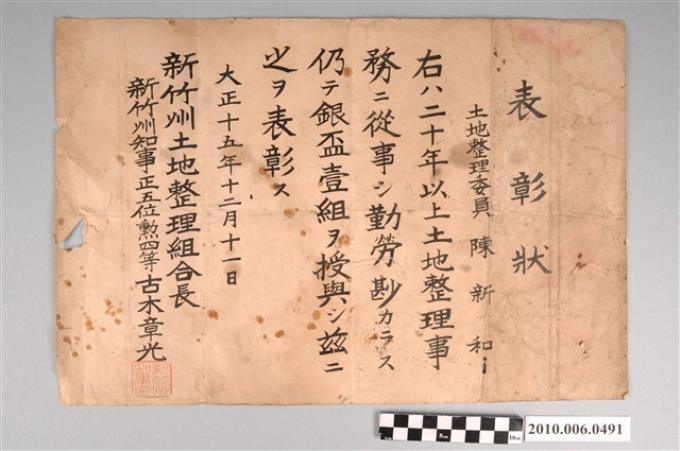 表彰狀
土地整理委員 陳新和
右ハ二十年以上土地整理事
務ニ從事シ勤勞尠カラス
仍テ銀盃壹組ヲ授與シ茲ニ
之ヲ表彰ス
大正十五年十二月十一日
新竹州土地整理組合長
新竹州知事正五位勲四等古木章光
5cm
10cm
2010.006.0491